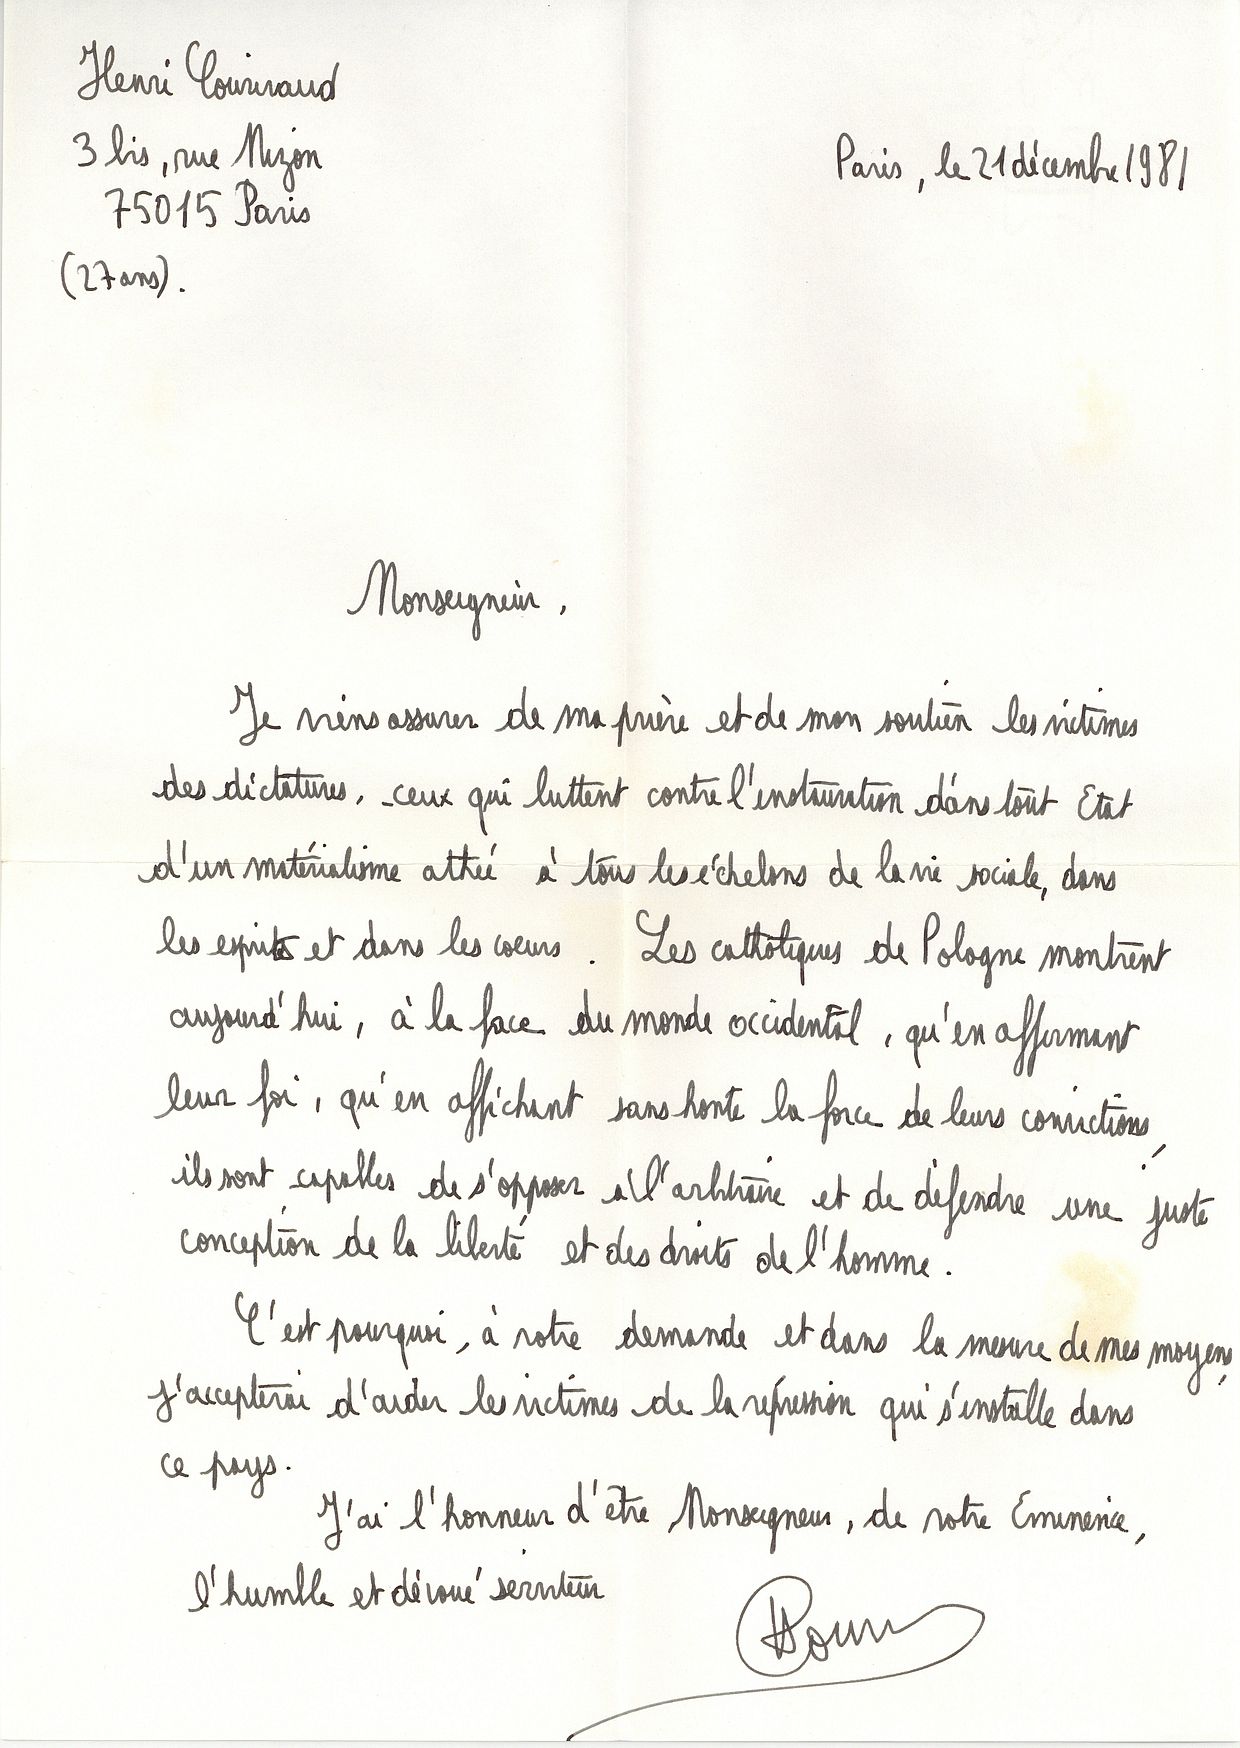 Henri Couivaud
3 bis, rue Mizon
75015 Paris
(27 ans).
Paris, le 21 décembre 1981
Monseigneur,
Je viens assurer de ma prière et de mon soutien les victimes
des dictatures, ceux qui luttent contre l'instauration dans tout Etat
d'un matérialisme athée à tous les échelons de la vie sociale, dans
les esprits et dans les coeurs. Les catholiques de Pologne montrent
aujourd'hui, à la face du monde occidental, qu'en affirmant
leur foi, qu'en affichant sans honte la force de leurs convictions,
ils sont capables de s'opposer à l'arbitraire et de défendre une juste
conception de la liberté et des droits de l'homme.
C'est pourquoi, à votre demande et dans la mesure de mes moyens,
j'accepterai d'aider les victimes de la répression qui s'installe dans
ce pays.
J'ai l'honneur d'être Monseigneur, de votre Eminence,
l'humble et dévoué serviteur